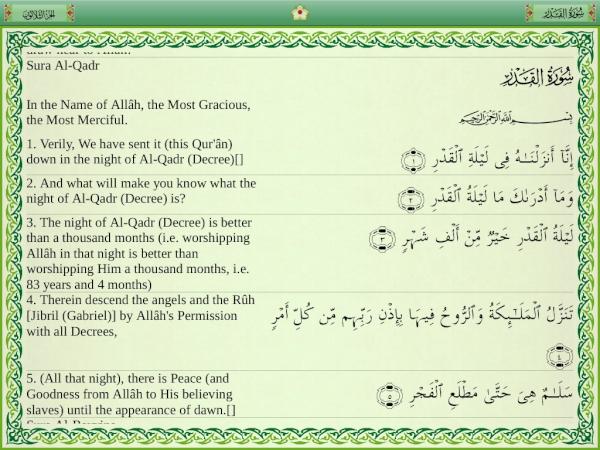 الجزء الثلاثون
سورة القدر
draw near to Allâh!
Sura Al-Qadr
سورة القدر
In the Name of Allâh, the Most Gracious,
the Most Merciful.
بسم الله الرحمن الرحيم
1. Verily, We have sent it (this Qur'ân)
down in the night of Al-Qadr (Decree)[]
إِنَّآ أَنزَلْنَـٰهُ فِى لَيْلَةِ ٱلْقَدْرِ ١
2. And what will make you know what the
night of Al-Qadr (Decree) is?
وَمَآ أَدْرَىٰكَ مَا لَيْلَةُ ٱلْقَدْرِ ٢
3. The night of Al-Qadr (Decree) is better
than a thousand months (i.e. worshipping
Allâh in that night is better than
worshipping Him a thousand months, i.e.
83 years and 4 months)
لَيْلَةُ ٱلْقَدْرِ خَيْرٌ مِّنْ أَلْفِ شَهْرٍ ٣
4. Therein descend the angels and the Rûh
[Jibril (Gabriel)] by Allâh's Permission
with all Decrees,
تَنَزَّلُ ٱلْمَلَـٰٓئِكَةُ وَٱلرُّوحُ فِيهَا بِإِذْنِ رَبِّهِم مِّن كُلِّ أَمْرٍ
٤
5. (All that night), there is Peace (and
Goodness from Allâh to His believing
slaves) until the appearance of dawn.[]
سَلَـٰمٌ هِىَ حَتَّىٰ مَطْلَعِ ٱلْفَجْرِ ٥